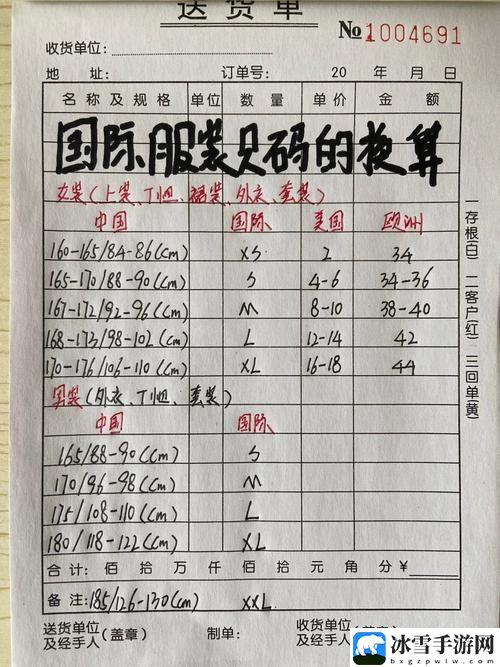 送货单
№1004691
收货单位:
地 址: 订单号: 20 年 月 日
名称及规格 单位 数量 单价 金额
国际服装尺码的换算
女装(上装、T恤、裙装、外衣、套装)
中国 国际 美国 欧洲
160-165/84-86(cm) XS 2 34
165-170/88-90(cm) S 4-6 34-36
167-172/92-96(cm) M 8-10 38-40
168-173/98-102(cm) L 12-14 42
170-176/106-110(cm) XL 16-18 44
男装(外衣、T恤、套装)
中国 国际
165/88-90(cm) S
170/96-98(cm) M
175/108-110(cm) L
180/118-122(cm) XL
合计: 佰 拾 万 仟 佰 拾 元 角 分 ¥
备注: 185/126-130(cm) XXL
送货单位及经手人(盖章) 制单: 收货单位及经手人(盖章)
一存根(白) 二客户(红) 三回单(黄)
冰雪手游网
bxgzpwlw.com